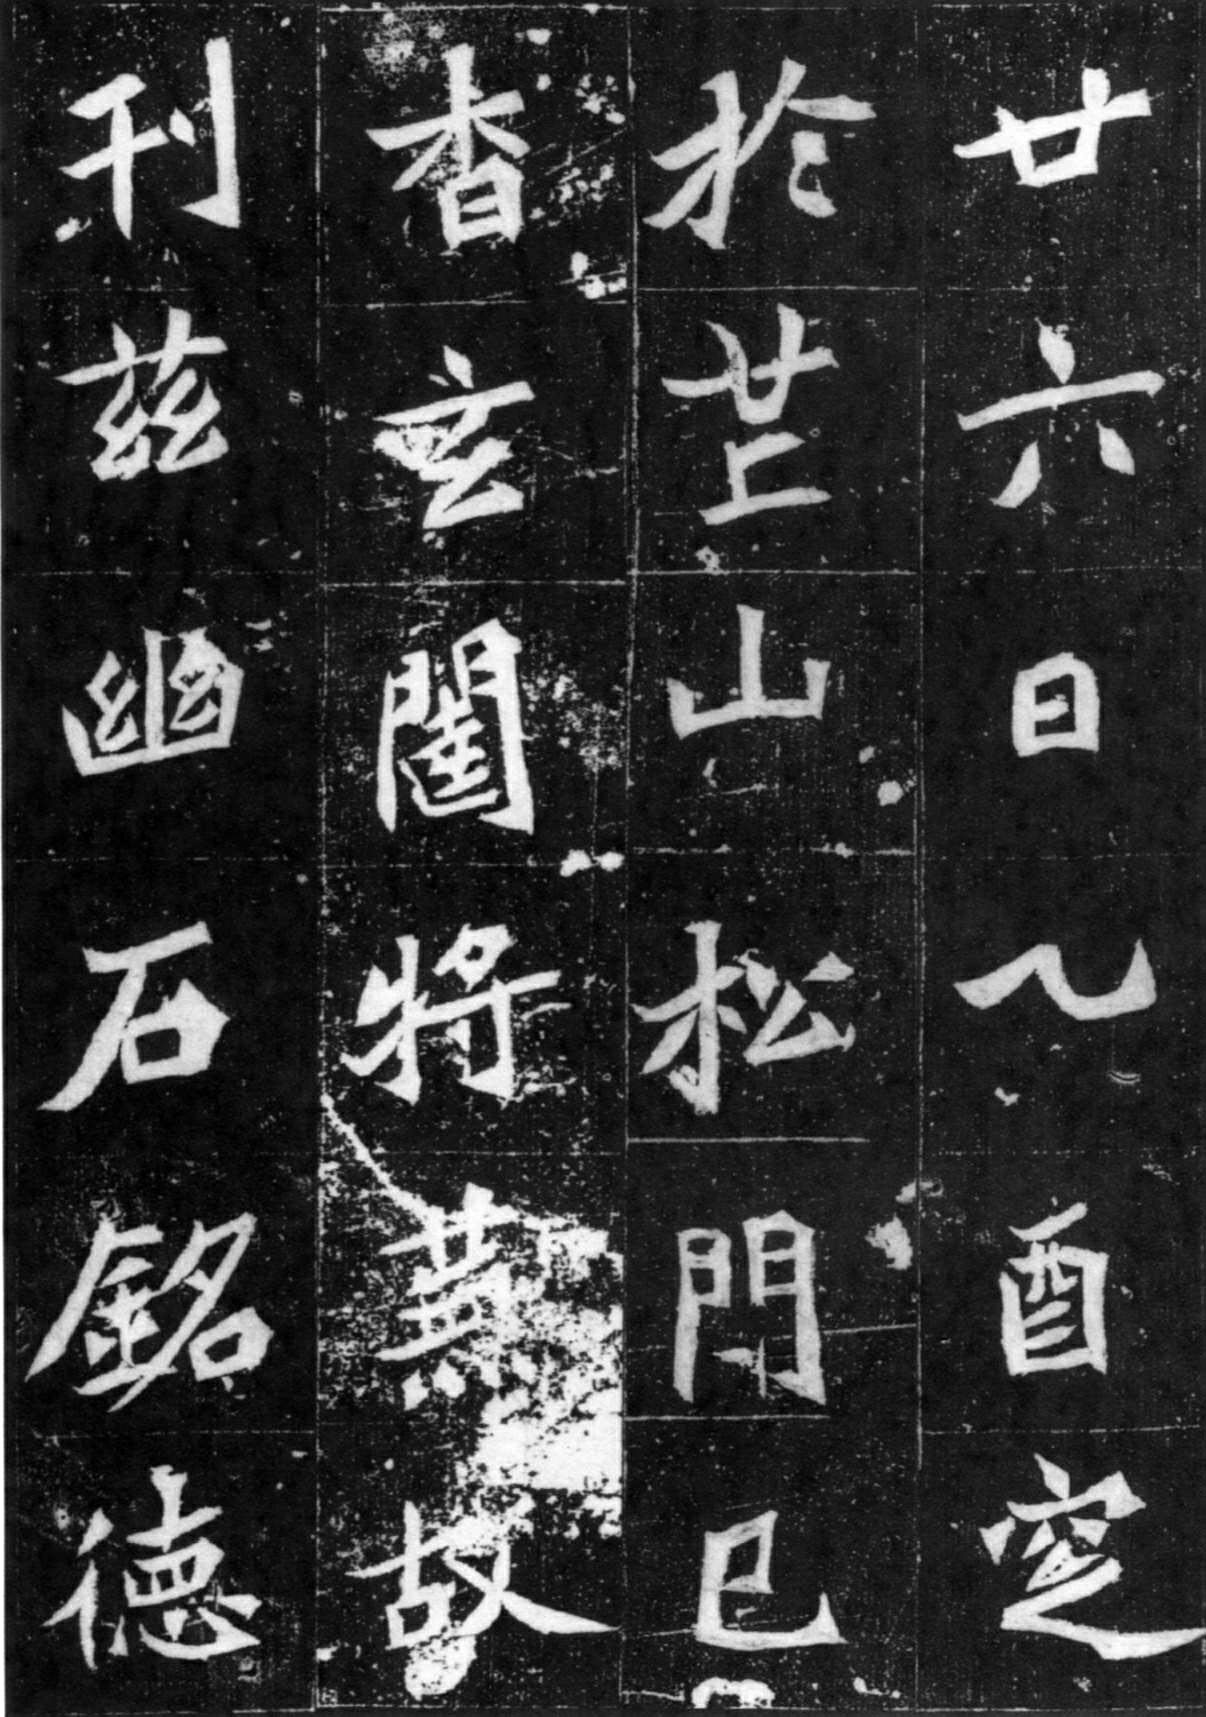 廿六日乙酉窆
於芒山松門已
杳玄闥將蕪故
刊兹幽石銘德